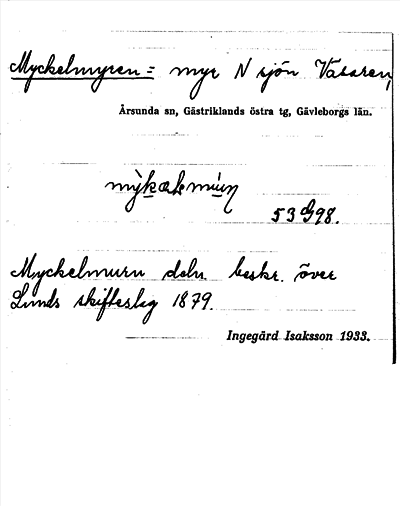 Myckelmyren = myr N sjön Vasaren,
Årsunda sn, Gästriklands östra tg, Gävleborgs län.
mỳkælmúɳ
53 G 98.
Myckelmurn deln. beskr. över
Lunds skifteslag 1879.
Ingegärd Isaksson 1933.